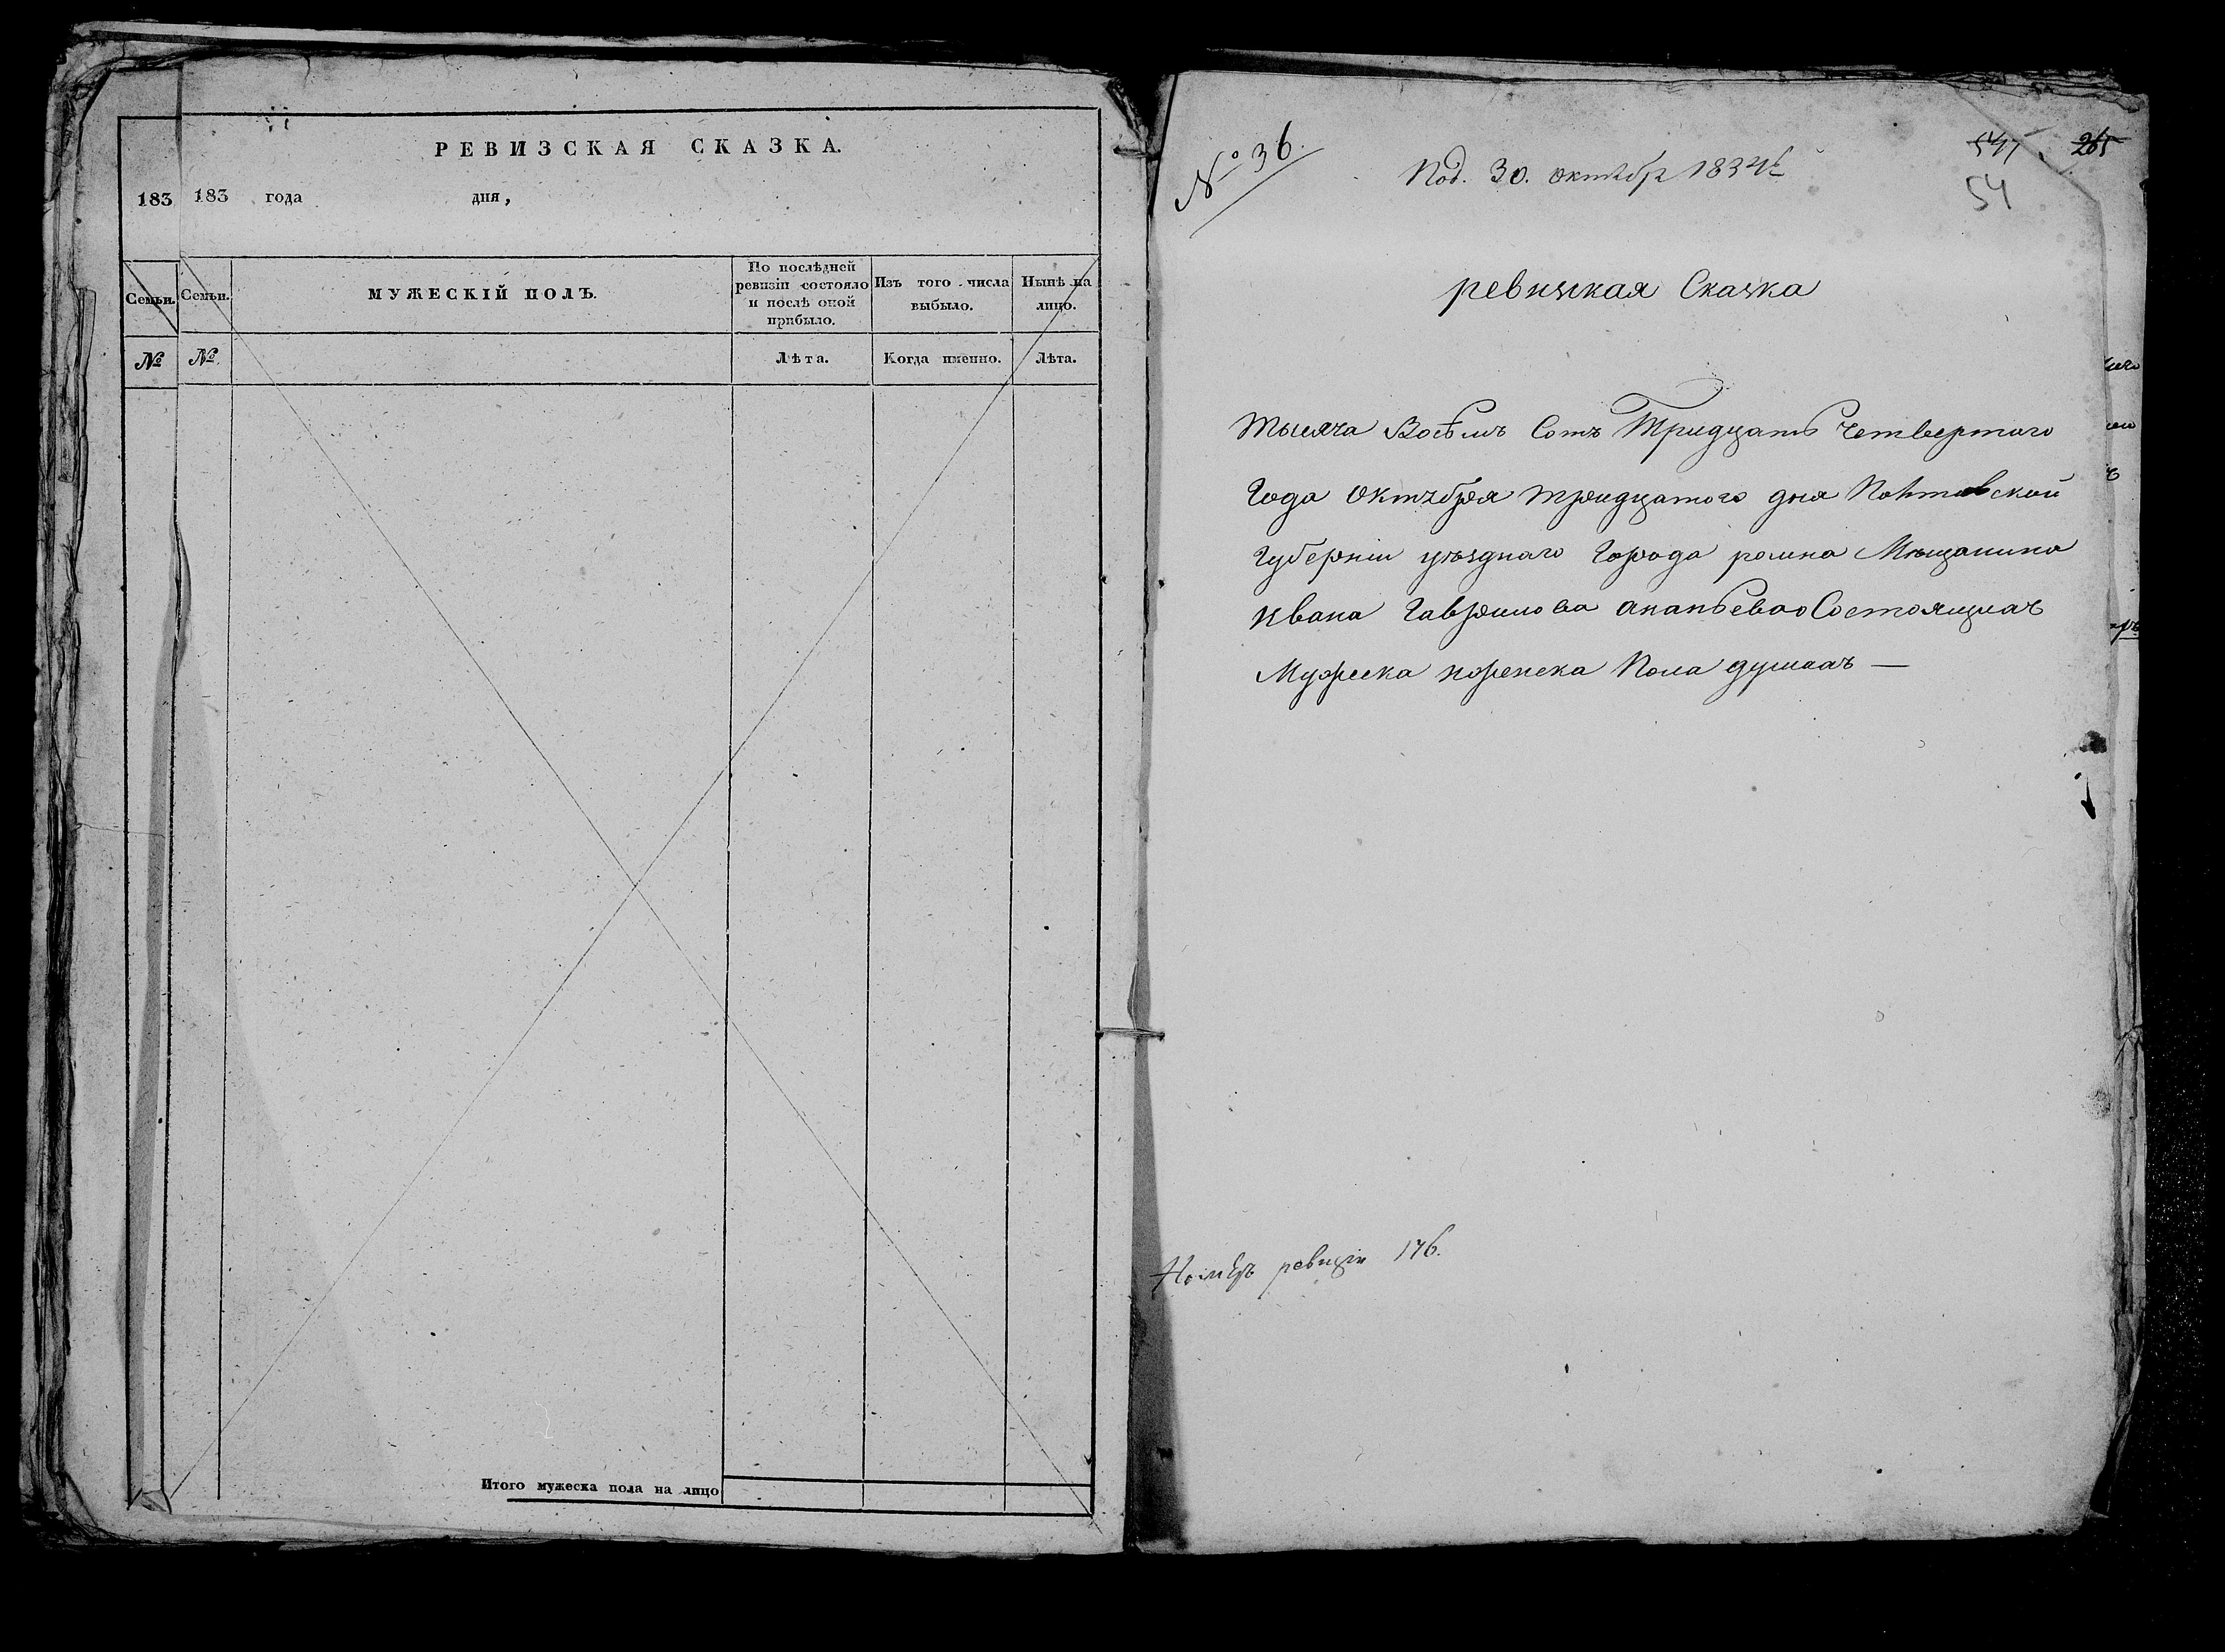 РЕВИЗСКАЯ СКАЗКА.
183 183 года дня,
Семьи. Семьи. МУЖЕСКІЙ ПОЛЪ. По послѣдней ревизіи состояло и послѣ оной прибыло. Изъ того числа выбыло. Нынѣ на лицо.
№ № Лѣта. Когда именно. Лѣта.
Итого мужеска пола на лицо
№ 36.
265
Под. 30. октября 1834
54
ревизкая Сказка
Тысяча Восѣмъ Сотъ Тридцать Четвертого
Года Октября тридцатого дня Полтавской
Губерніи уѣзднаго Города ромна Мѣщанина
Ивана Гаврилова Ананьева о Состоящихъ
Мужеска ижренска Пола душахъ —
Номеръ ревизіи 176.